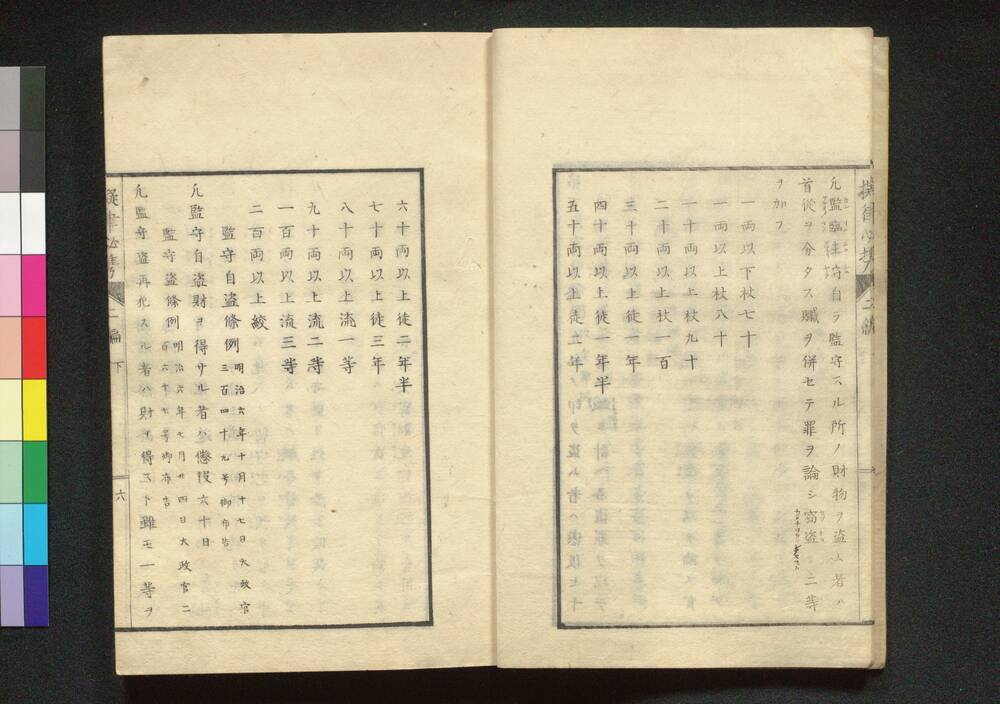 凡監臨主守自ラ監守スル所ノ財物ヲ盗ム者ハ
首従ヲ分タス贓ヲ併セテ罪ヲ論シ窃盗 二等
ヲ加フ
一両以下杖七十
一両以上杖八十
一十両以上杖九十
二十両以上杖一百
三十両以上徒一年
四十両以上徒一年半
五十両以上徒二年
六十両以上徒二年半
七十両以上徒三年
八十両以上流一等
九十両以上流二等
一百両以上流三等
二百両以上絞
監守自盗條例 明治六年十月十七日太政官
三百四十九号御布告
凡監守自盗財ヲ得サル者ハ懲役六十日
監守盗條例 明治六年七月廿四日太政官二
百六十七号御布告
凡監守盗再犯スル者ハ財ヲ得スト雖モ一等ヲ
二編 下
六